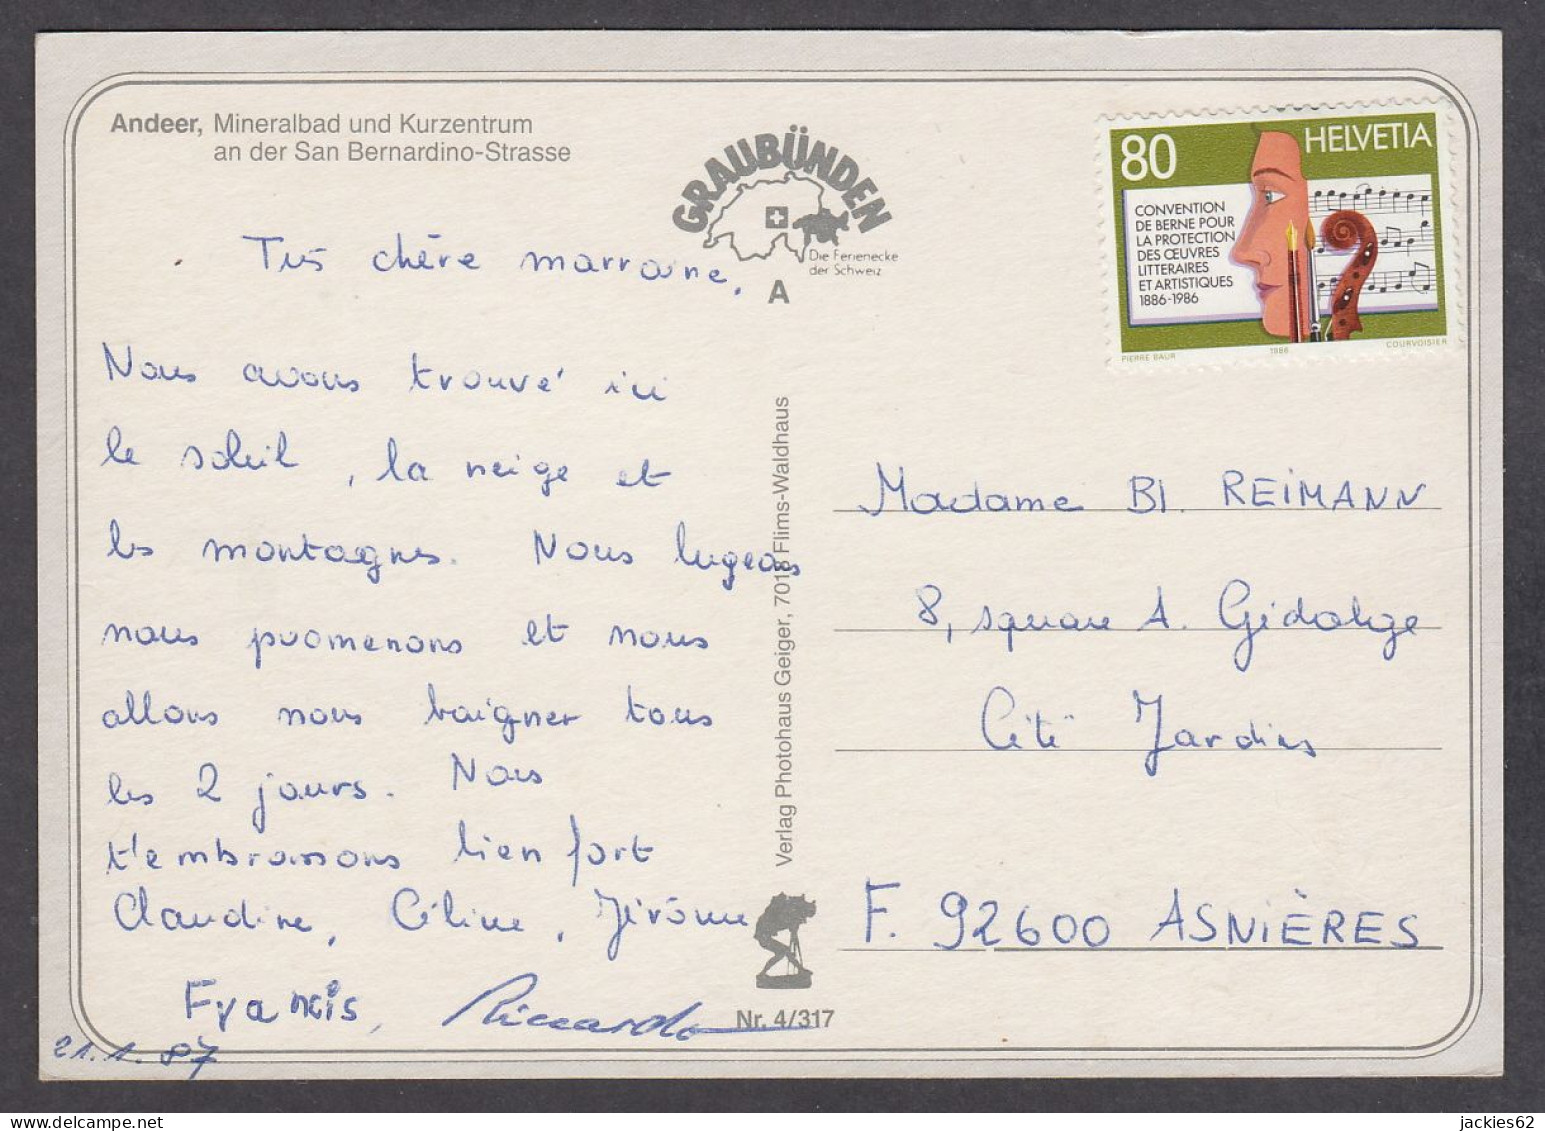 Andeer, Mineralbad und Kurzentrum
an der San Bernardino-Strasse
GRAUBÜNDEN
Die Ferienecke
der Schweiz
A
80
HELVETIA
CONVENTION
DE BERNE POUR
LA PROTECTION
DES ŒUVRES
LITTERAIRES
ET ARTISTIQUES
1886-1986
PIERRE BAUR
1986
COURVOISIER
Très chère marraine,
Nous avons trouvé ici
le soleil, la neige et
les montagnes. Nous lugeons
nous promenons et nous
allons nous baigner tous
les 2 jours. Nous
t'embrassons bien fort
Claudine, Céline, Jérôme
Francis, Riccardo
21.1.87
Verlag Photohaus Geiger, 7018 Flims-Waldhaus
Nr. 4/317
Madame Bl. REIMANN
8, square A. Gidalige
Cité Jardins
F. 92600 ASNIÈRES
jackies62